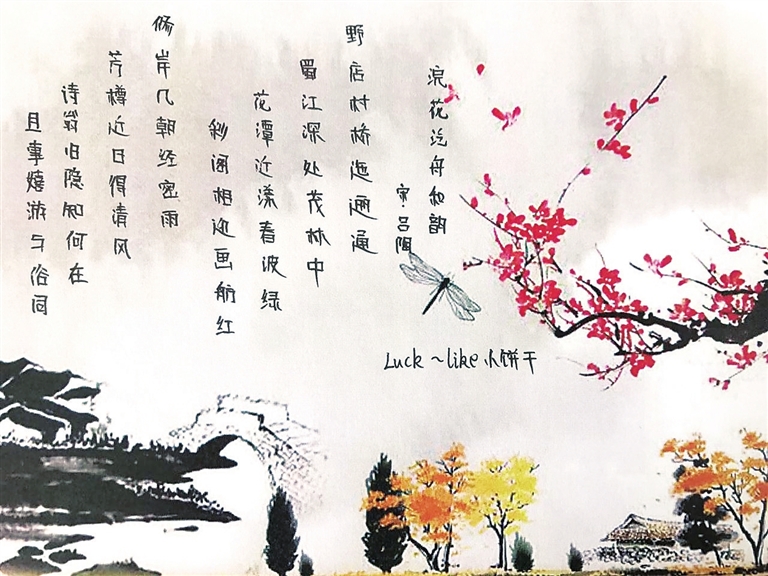 浣花泛舟和韵
宋·吕陶
野店村桥迤逦通
蜀江深处茂林中
花潭近漾春波绿
彩阁相迎画舫红
脩岸几朝经密雨
芳樽近日得清风
诗翁旧隐知何在
且事嬉游与俗同
Luck ~like小饼干